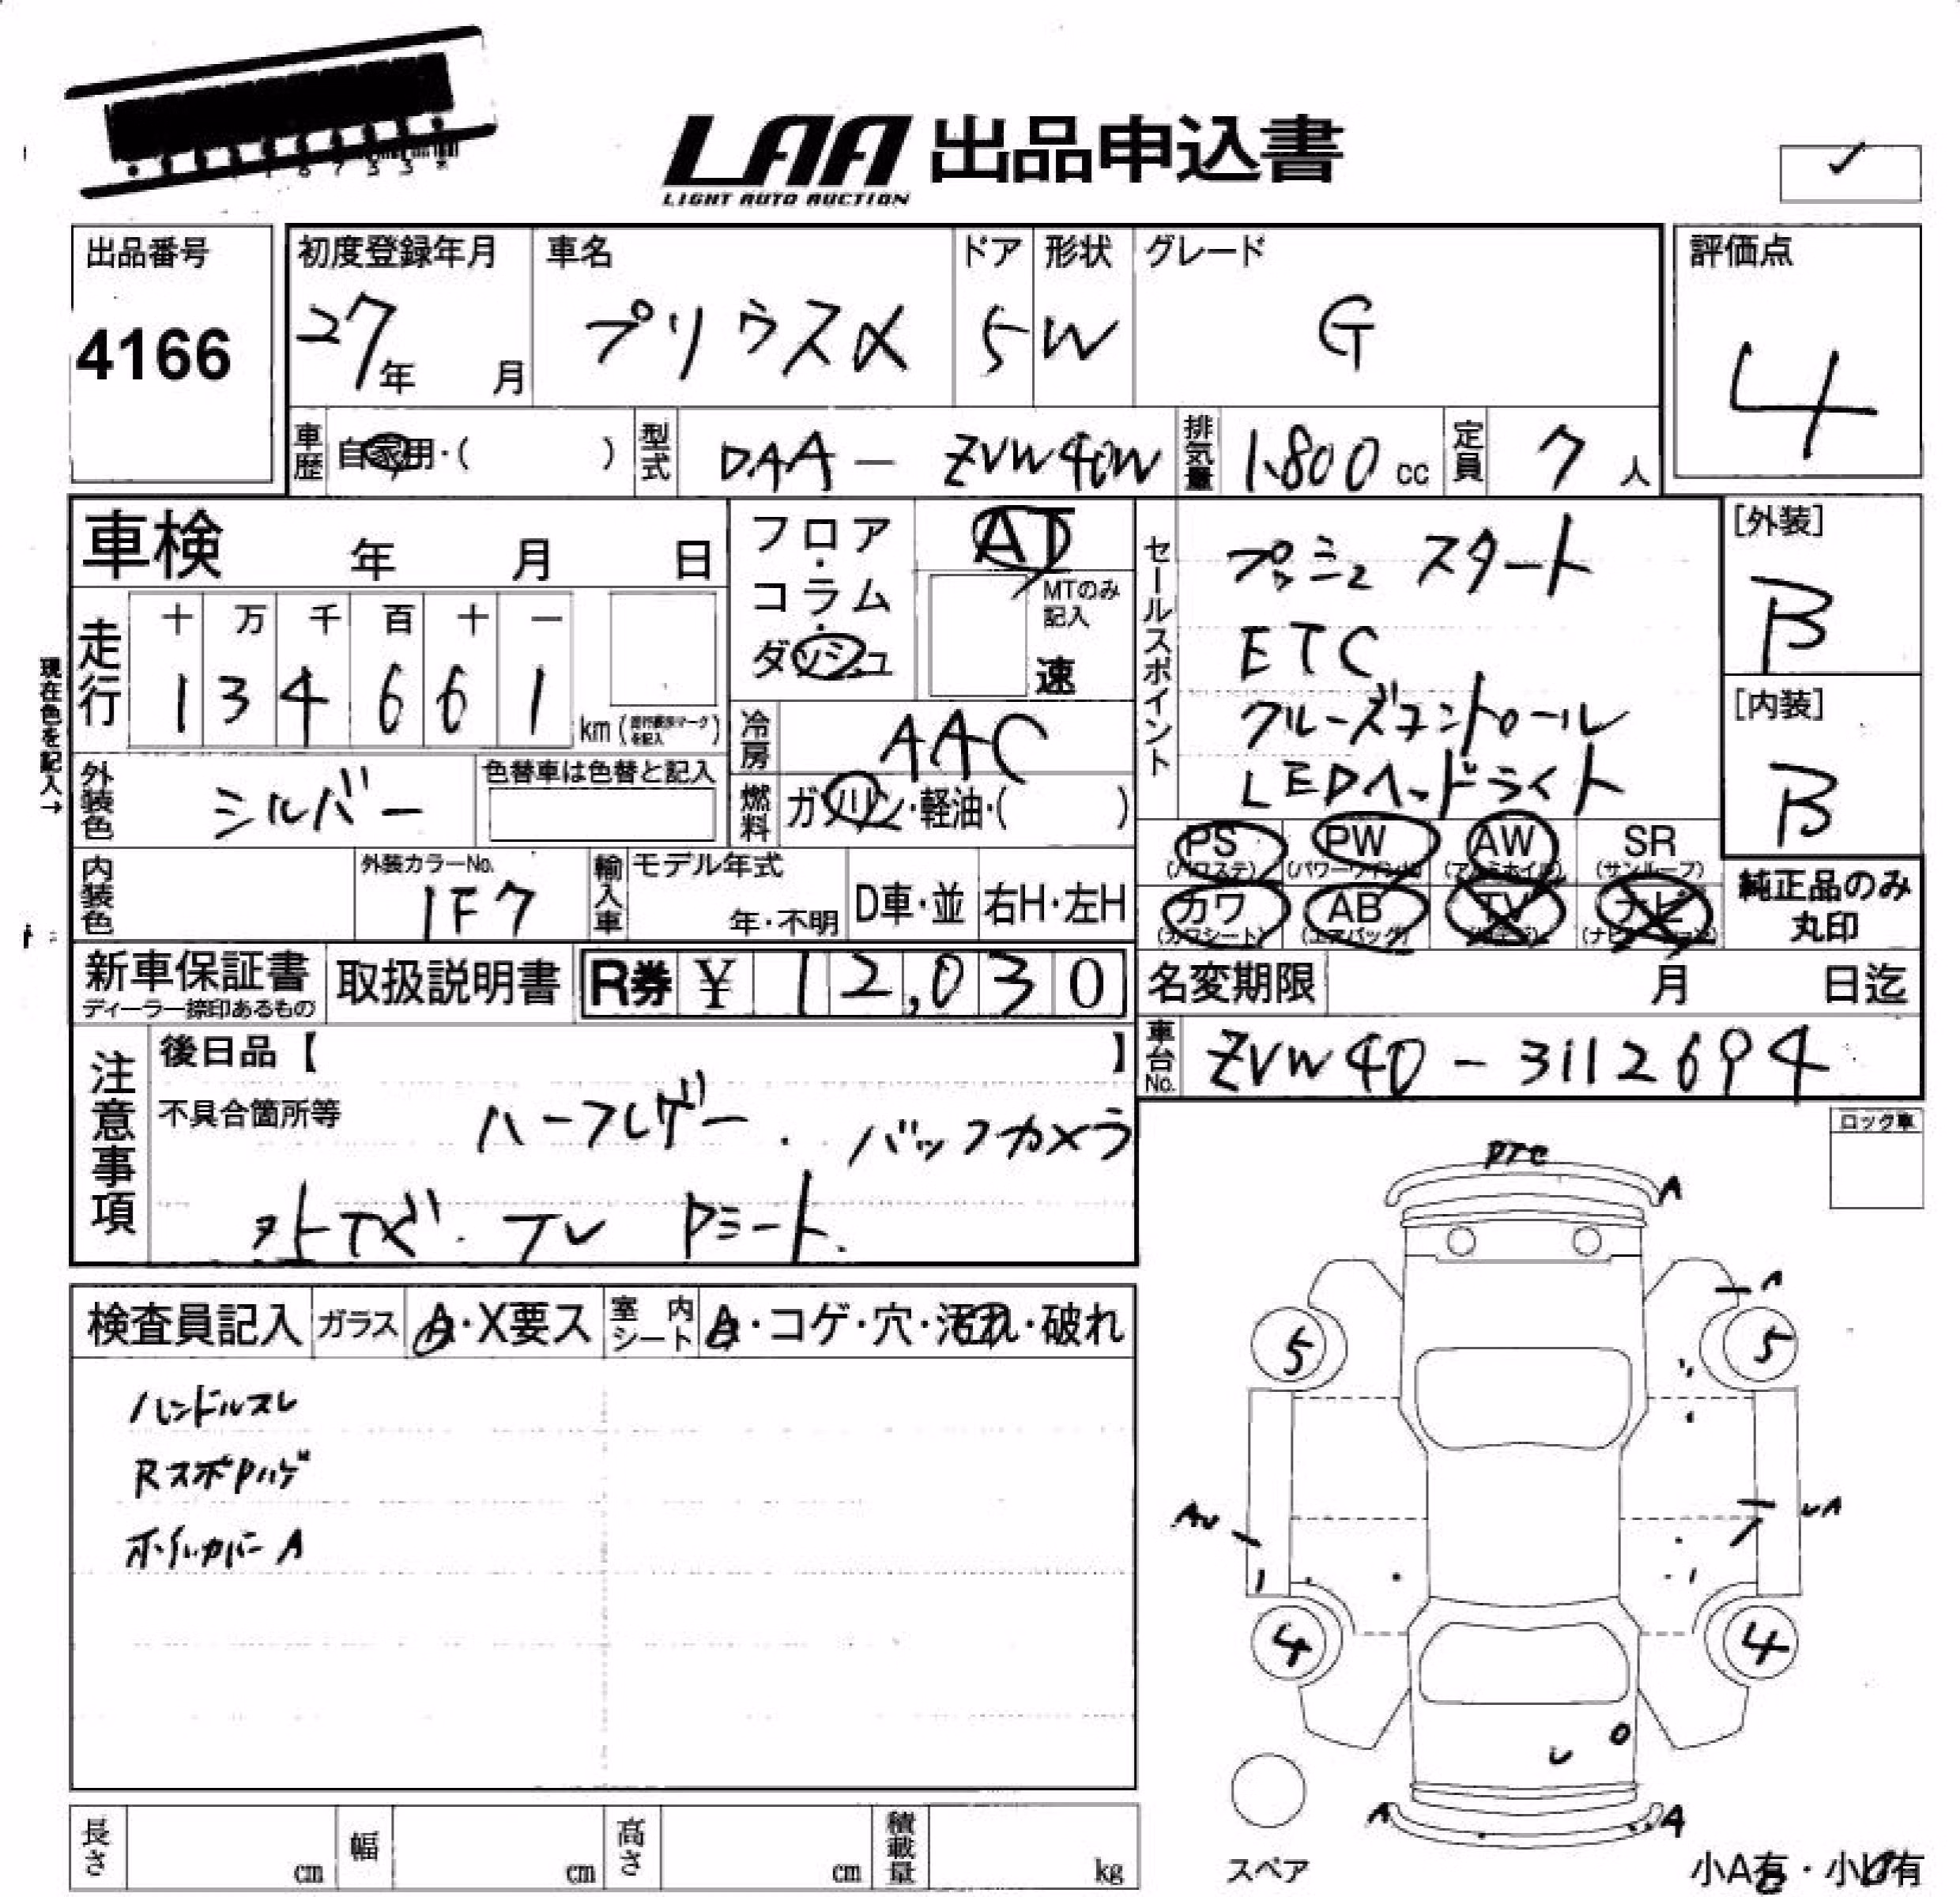 LAA 出品申込書
LIGHT AUTO AUCTION
出品番号
4166
初度登録年月
27年 月
車名
プリウスα
ドア
5
形状
W
グレード
G
評価点
4
車歴 自家用・( )
型式 DAA - ZVW40W
排気量 1.800 cc
定員 7 人
車検 年 月 日
走行
十 万 千 百 十 一
1 3 4 6 6 1 km
現在色を記入→
フロア・コラム・ダッシュ
AT
MTのみ記入
速
冷房 AAC
燃料 ガソリン・軽油・( )
セールスポイント
プッシュ スタート
ETC
クルーズコントロール
LEDヘッドライト
[外装]
B
[内装]
B
外装色 シルバー
色替車は色替と記入
内装色
外装カラーNo.
1F7
輸入車 モデル年式
年・不明
D車・並
右H・左H
PS (パワステ)
PW (パワーウインド)
AW (アルミホイル)
SR (サンルーフ)
カワ (カワシート)
AB (エアバッグ)
TV
ナビ
純正品のみ
丸印
新車保証書
ディーラー捺印あるもの
取扱説明書
R券 ¥ 12,030
名変期限 月 日迄
車台No. ZVW40 - 3112694
注意事項
後日品【 】
不具合箇所等
ハーフレザー . バックカメラ
TV Pシート.
ロック車
検査員記入
ガラス A・X要ス
室内シート A・コゲ・穴・汚れ・破れ
ハンドルスレ
RスポPハゲ
ホイルカバーA
A
A
5
5
4
4
A
A
スペア
長さ cm
幅 cm
高さ cm
積載量 kg
小A有・小U有